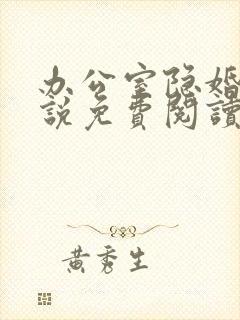 办公室隐婚
說免費閱讀
黃秀生